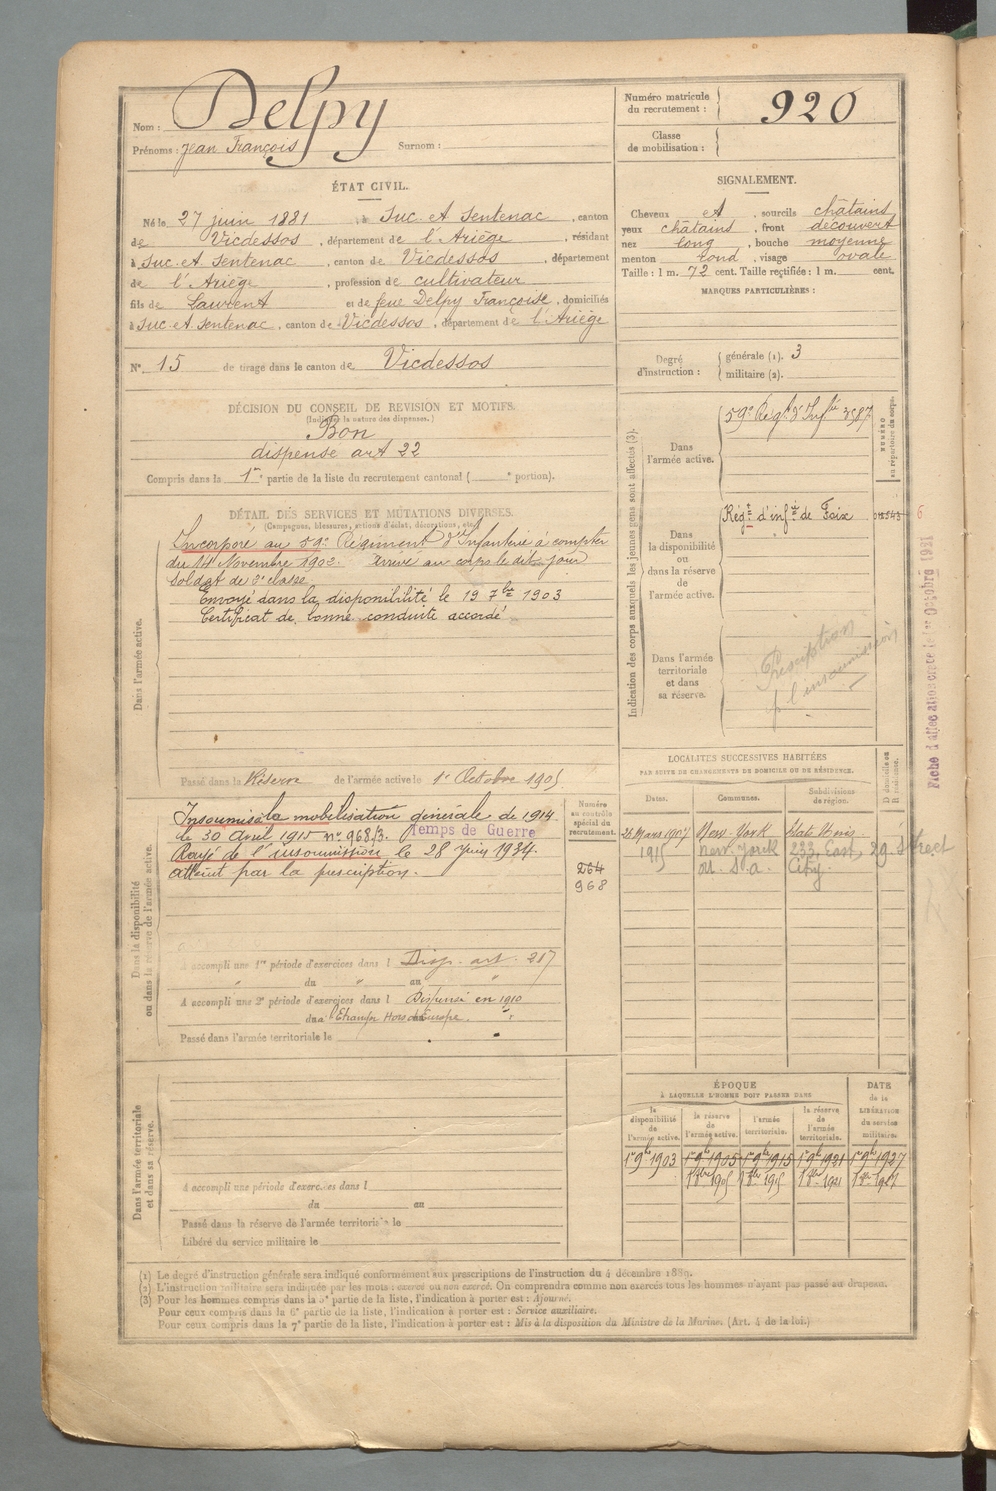 Nom : Delpy
Prénoms : Jean François Surnom :
Numéro matricule du recrutement : 920
Classe de mobilisation :
ÉTAT CIVIL.
Né le 27 juin 1881, à Suc-et-Sentenac, canton
de Vicdessos, département de l'Ariège, résidant
à Suc-et-Sentenac, canton de Vicdessos, département
de l'Ariège, profession de cultivateur
fils de Laurent et de feue Delpy Françoise, domiciliés
à Suc-et-Sentenac, canton de Vicdessos, département de l'Ariège
N° 15 de tirage dans le canton de Vicdessos
SIGNALEMENT.
Cheveux et, sourcils châtains
yeux châtains, front découvert
nez long, bouche moyenne
menton rond, visage ovale
Taille : 1 m. 72 cent. Taille rectifiée : 1 m. cent.
MARQUES PARTICULIÈRES :
Degré d'instruction : générale (1). 3
militaire (2).
DÉCISION DU CONSEIL DE REVISION ET MOTIFS.
(Indiquer la nature des dispenses.)
Bon
dispensé art 22
Compris dans la 1re partie de la liste du recrutement cantonal ( e portion).
DÉTAIL DES SERVICES ET MUTATIONS DIVERSES.
(Campagnes, blessures, actions d'éclat, décorations, etc.)
Dans l'armée active.
Incorporé au 59e Régiment d'Infanterie à compter
du 14 Novembre 1902. Arrivé au corps le dit jour
Soldat de 2e classe.
Envoyé dans la disponibilité le 19 7bre 1903
Certificat de bonne conduite accordé
Passé dans la Réserve de l'armée active le 1er Octobre 1905
Indication des corps auxquels les jeunes gens sont affectés (3).
NUMÉRO au répertoire du corps.
Dans l'armée active.
59e Régt d'Infie 3587
Dans la disponibilité ou dans la réserve de l'armée active.
Régt d'infie de Foix
6
Dans l'armée territoriale et dans sa réserve.
Prescription
p l'insoumission
Fiche d'affectation créée le 1er Octobre 1921
Dans la disponibilité ou dans la réserve de l'armée active.
Insoumis à la mobilisation générale de 1914
le 30 Avril 1915 n° 968/3. Temps de Guerre
Rayé de l'insoumission le 28 Juin 1934.
atteint par la prescription.
Numéro au contrôle spécial du recrutement.
264
968
A accompli une 1re période d'exercices dans l Disp. art.
du au
A accompli une 2e période d'exercices dans l Dispensé en 1910
du Étranger Hors d'Europe. au
Passé dans l'armée territoriale le
LOCALITÉS SUCCESSIVES HABITÉES
PAR SUITE DE CHANGEMENTS DE DOMICILE OU DE RÉSIDENCE.
Dates. Communes. Subdivisions de région. D domicile ou R résidence.
Mars 1907 New-York États Unis
1915 New York 233, East, 29 Street
U. S. a. City
Dans l'armée territoriale et dans sa réserve.
A accompli une période d'exercices dans l
du au
Passé dans la réserve de l'armée territoriale le
Libéré du service militaire le
ÉPOQUE
À LAQUELLE L'HOMME DOIT PASSER DANS
DATE de la LIBÉRATION du service militaire.
la disponibilité de l'armée active. la réserve de l'armée active. l'armée territoriale. la réserve de l'armée territoriale.
1er 9bre 1903 1er 9bre 1905 1er 9bre 1915 1er 9bre 1921 1er 9bre 1927
1er 8bre 1905 1er 8bre 1915 1er 8bre 1921 1er 8bre 1927
(1) Le degré d'instruction générale sera indiqué conformément aux prescriptions de l'instruction du 4 décembre 1889.
(2) L'instruction militaire sera indiquée par les mots : exercé ou non exercé. On comprendra comme non exercés tous les hommes n'ayant pas passé au drapeau.
(3) Pour les hommes compris dans la 5e partie de la liste, l'indication à porter est : Ajourné.
Pour ceux compris dans la 6e partie de la liste, l'indication à porter est : Service auxiliaire.
Pour ceux compris dans la 7e partie de la liste, l'indication à porter est : Mis à la disposition du Ministre de la Marine. (Art. 4 de la loi.)